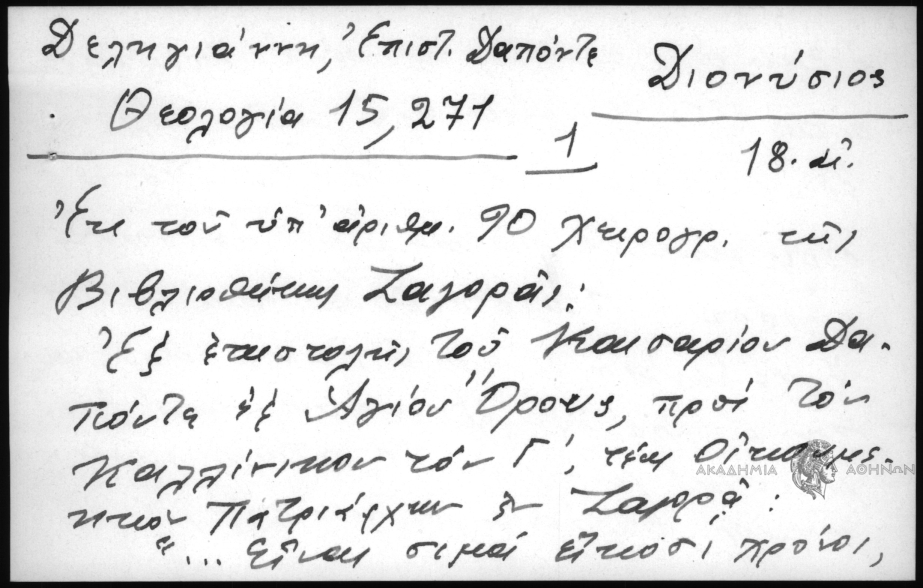 Δεληγιάννη, Ἐπιστ. Δαπόντε
Διονύσιος
Θεολογία 15, 271
1
18. αἰ.
Ἐκ τοῦ ὑπ' ἀριθμ. 90 χειρογρ. τῆς
Βιβλιοθήκης Ζαγορᾶς:
Ἐξ ἐπιστολῆς τοῦ Καισαρίου Δα-
πόντε ἐξ Ἁγίου Ὄρους, πρὸς τὸν
Καλλίνικον τὸν Γ', τέως Οἰκουμε-
νικὸν Πατριάρχην ἐν Ζαγορᾷ:
"... Εἶναι σιμὰ εἴκοσι χρόνοι,
ΑΚΑΔΗΜΙΑ ΑΘΗΝΩΝ